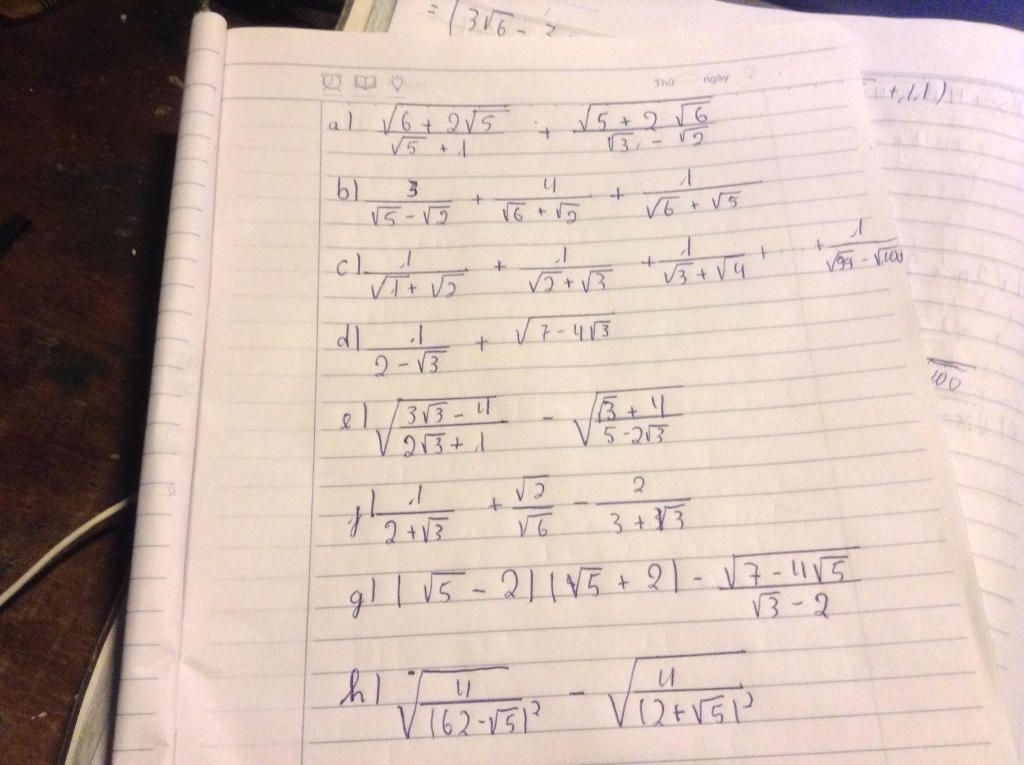 = (3√6 -
Thứ ngày
+1,1)
a) √(6 + 2√5) / (√5 + 1) + √(5 + 2√6) / (√3 - √2)
b) 3 / (√5 - √2) + 4 / (√6 + √2) + 1 / (√6 + √5)
c) 1 / (√1 + √2) + 1 / (√2 + √3) + 1 / (√3 + √4) + ... + 1 / (√99 - √100)
d) 1 / (2 - √3) + √(7 - 4√3)
100
e) √((3√3 - 4) / (2√3 + 1)) - √((√3 + 4) / (5 - 2√3))
f) 1 / (2 + √3) + √2 / √6 - 2 / (3 + √3)
g) (√5 - 2)(√5 + 2) - √(7 - 4√5) / (√3 - 2)
h) √(4 / (62 - √5)²) - √(4 / (2 + √5)²)